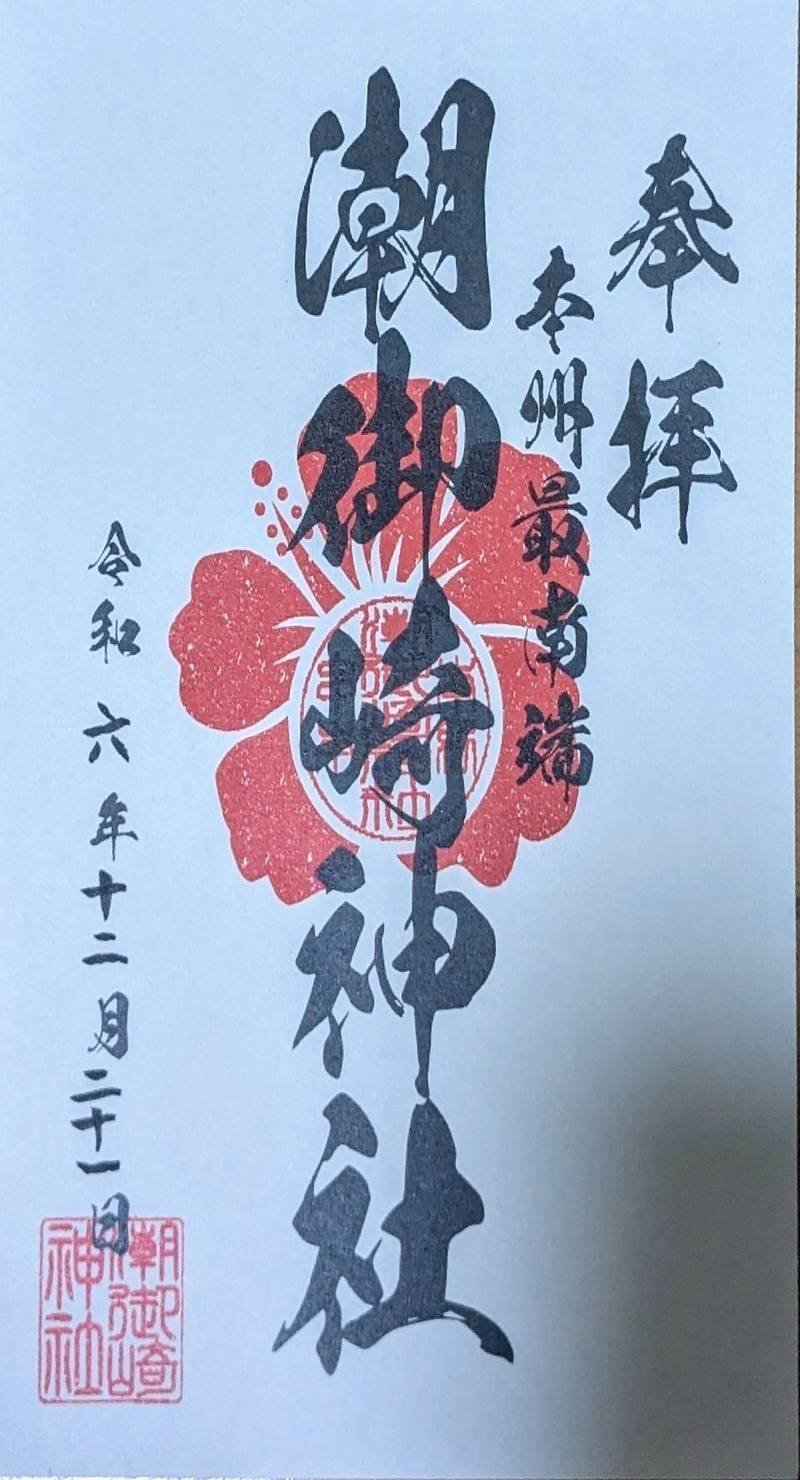 奉拝
本州最南端
潮御崎神社
令和六年十二月二十一日
潮御崎
神社